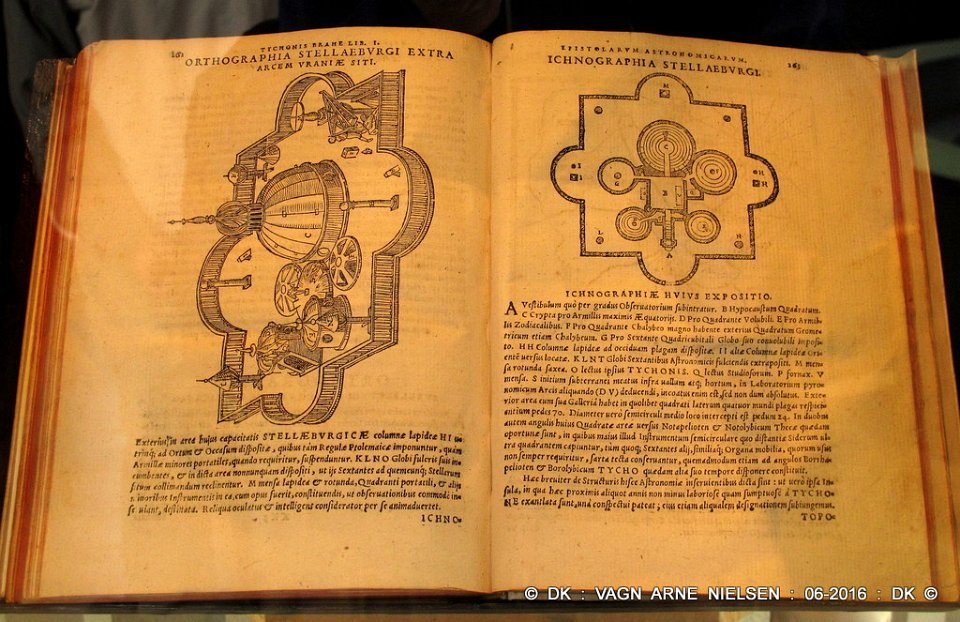 TYCHONIS BRAHE LIB. I.
ORTHOGRAPHIA STELLAEBVRGI EXTRA
ARCEM VRANIÆ SITI.
C
Exterius in area hujus capacitatis STELLÆBURGICÆ columnæ lapideæ HI u-
trinq; ad Ortum & Occasum dispositæ, quibus tam Regulæ Ptolemaicæ imponuntur, quam
Armillæ minores portatiles, quando requiritur, suspenduntur. KLNO Globi fulcris suis in-
cumbentes, & in dicta area nonnunquam dispositi, ut ijs Sextantes ad quemcunq; Stellarum
situm collimandum reclinentur. M mensa lapidea & rotunda, Quadranti portatili, & alijs
minoribus Instrumentis in ea, cum opus fuerit, constituendis, ut observationibus commodè in-
serviant, destinata. Reliqua oculatus & intelligens considerator per se animadvertet.
ICHNO-
EPISTOLARVM ASTRONOMICARVM.
263
ICHNOGRAPHIA STELLÆBVRGI.
M
C
G
B
H
I
L
K
A
ICHNOGRAPHIÆ HVIVS EXPOSITIO.
A Vestibulum quò per gradus Observatorium subintratur. B Hypocaustum Quadratum.
C Crypta pro Armillis maximis Æquatorijs. D Pro Quadrante Volubili. E Pro Armil-
lis Zodiacalibus. F Pro Quadrante Chalybeo magno habente exterius Quadratum Geome-
tricum etiam Chalybeum. G Pro Sextante Quadricubitali Globo suo convolubili imposi-
to. HH Columnæ lapideæ ad occiduam plagam dispositæ. II aliæ Columnæ lapideæ Ori-
entē versus locatæ. KLNT Globi Sextantibus Astronomicis fulciendis extrapositi. M men-
sa rotunda saxea. O lectus ipsius TYCHONIS. Q lectus Studiosorum. P fornax. V
mensa. S initium subterranei meatus infra vallum atq; hortum, in Laboratorium pyro-
nomicum Arcis aliquando (DV) deducendi, incoatus enim est, sed non dum absolutus. Exte-
rior area cum sua Galleria habet in quolibet quadrati laterum quatuor mundi plagas respici-
entium pedes 70. Diameter verò semicirculi medio loco intercepti est pedum 24. In duobus
autem angulis huius Quadratæ areæ versus Notapelioten & Notolybicum Thecæ quædam
oportunæ sunt, in quibus maius illud Instrumentum semicirculare quo distantiæ Siderum ul-
tra quadrantem capiuntur, tum quoq; Sextantes alij, similiaq; Organa mobilia, quorum usus
non semper requiritur, sarta tecta conservantur, quemadmodum etiam ad angulos Borrha-
pelioten & Borolybicum TYCHO quædam alia suo tempore disponere constituit.
Hæc breviter de Structuris hisce Astronomiæ inservientibus dicta sint: ut verò ipsa In-
sula, in qua hæc proximis aliquot annis non minus laboriosè quam sumptuosè à TYCHO-
NE exantlata sunt, unà conspectui pateat, eius etiam aliqualem designationem subiungemus.
TOPO-
© DK : VAGN ARNE NIELSEN : 06-2016 : DK ©